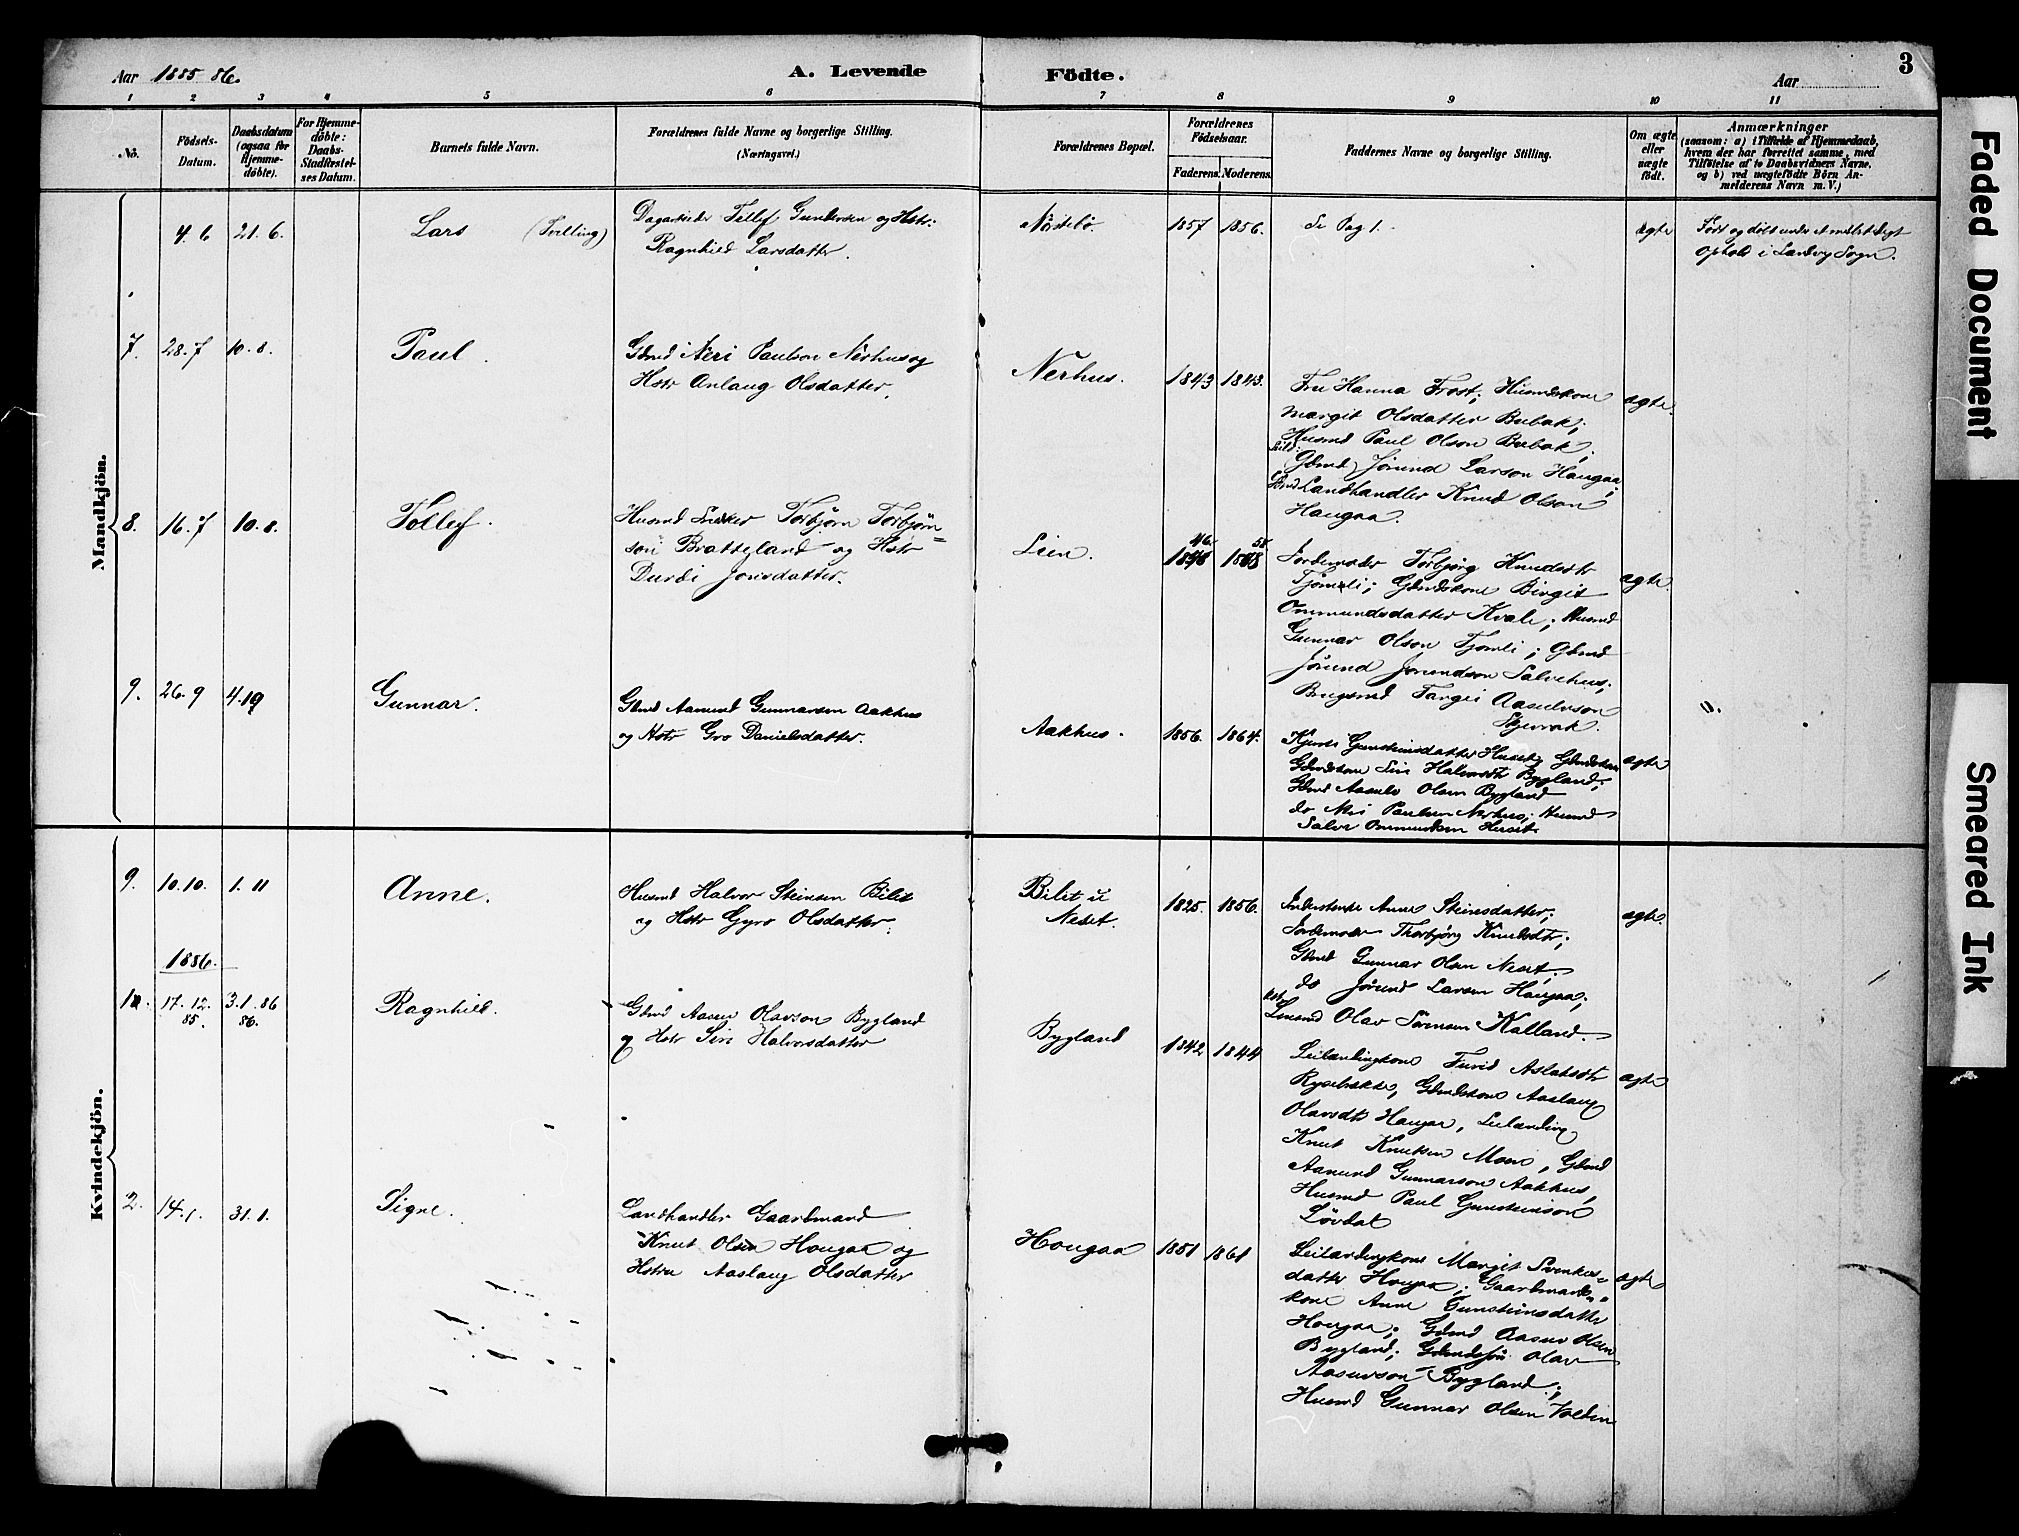 3
Aar 1885-86.
A. Levende Födte.
Aar
1 2 3 4 5 6 7 8 9 10 11
No.
Födsels-Datum.
Daabsdatum (ogsaa for Hjemme-döbte).
For Hjemme-döbte: Daabs-Stadfæstel-ses Datum.
Barnets fulde Navn.
Forældrenes fulde Navne og borgerlige Stilling.
(Næringsvei.)
Forældrenes Bopæl.
Forældrenes Födselsaar.
Faderens. Moderens.
Faddernes Navne og borgerlige Stilling.
Om ægte eller uægte födt.
Anmærkninger
(saasom: a) i Tilfælde af Hjemmedaab, hvem der har forrettet samme, med Tilföielse af to Daabsvidners Navne. og b) ved uægtefödte Börn An-melderens Navn m. V.)
Mandkjön.
4.6 21.6. Lars (Tvilling)
Dagarbeider Tellef Gundersen og Hstr:
Ragnhild Larsdatter.
1857 1856.
Se Pag 1.
ægte
Født og døbt under et midlertidigt
Ophold i Landvig Sogn.
7. 28.7 10.8. Paul.
Gbmd Neri Paulson Nerhus og
Hstr Anlaug Olsdatter.
Nerhus.
1843 1843.
Fru Hanna Frost; Husmdskone
Margit Olsdatter Bebak;
Husmd Paul Olson Bebak;
Gbmd Jörund Larson Haugaa;
Landhandler Knud Olson
Haugaa.
ægte.
8. 16.7 10.8. Tollef.
Husmd Snedker Torbjörn Torbjörn=
son Bratteland og Hstr
Durdi Jonsdatter.
Lien.
46. 58
Jordemoder Torbjörg Knudsdtr
Tjömli; Gbmdskone Birgit
Ommundsdatter Kvale; Husmd
Gunnar Olson Tjomli; Gbmd
Jörund Jorundson Salvehus;
Brugsmd Targei Aasulvson
Skjevrak.
ægte.
9. 26.9 4.10 Gunnar.
Gbmd Aamund Gunnarsen Aakhus
og Hstr Gro Danielsdatter.
Aakhus.
1856. 1864.
Gunsteinsdatter
Gbmdskone Siri Halvorsdt Bygland;
Gbmd Aasulv Olsen Bygland
do Neri Paulsen Nerhus; Husmd
Salve Ommundsen
ægte
Kvindekjön.
9. 10.10. 1.11 Anne.
Husmd Halvor Steinsen Bilit
og Hstr Gyro Olsdatter.
Bilit u
Neset.
1825. 1856.
Anne Steinsdatter;
Jordemoder Thorbjörg Knudsdtr;
Gbmd Gunnar Olsen Neset.
do Jörund Larsen Haugaa;
Olav Sörensen Kalland.
ægte.
1886.
17.12.85. 3.1.86
86.
Ragnhild.
Gbmd Aasulv Olavson Bygland
og Hstr Siri Halvorsdatter
Bygland
1842 1844
Leilændingkone Turid Aslaksdtr
Gbmdskone Aaslaug
Olavsdtr Haugaa, Leilænding
Knut Knutsen Moen, Gbmd
Aamund Gunnarson Aakhus,
Husmd Paul Gunsteinson
Lövdal
ægte
2. 14.1. 31.1. Signe.
Landhandler Gaardmand
Knut Olsen Hougaa og
Hstru Aaslaug Olsdatter
Hougaa
1851 1861
Leilændingkone Margit Svenkes=
datter Hougaa; Gaardmands=
kone Anne Gunsteinsdatter
Hougaa; Gbmd Aasulv Olsen
Bygland; Gbmdssön Olav
Aasulvson Bygland;
Husmd Gunnar Olsen
ægte
Faded Document
Smeared Ink